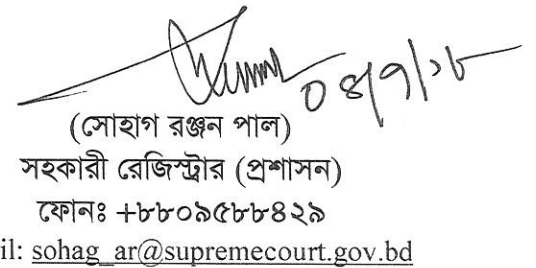 ০৪/৭/১৮
(সোহাগ রঞ্জন পাল)
সহকারী রেজিস্ট্রার (প্রশাসন)
ফোনঃ +৮৮০৯৫৮৮৪২৯
il: sohag_ar@supremecourt.gov.bd